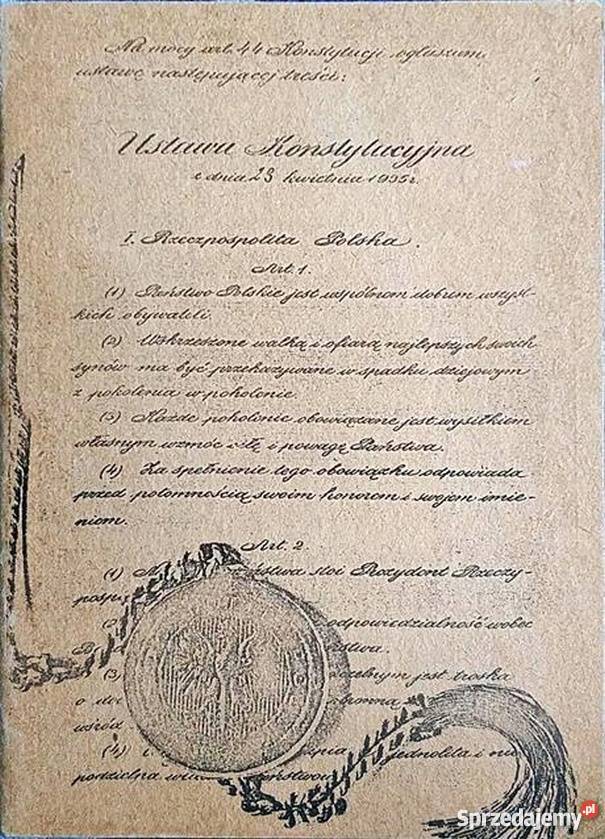 Na mocy art. 44 Konstytucji ogłaszam
ustawę następującej treści:
Ustawa Konstytucyjna
z dnia 23 kwietnia 1935 r.
I. Rzeczpospolita Polska.
Art. 1.
(1) Państwo Polskie jest wspólnem dobrem wszyst-
kich obywateli.
(2) Wskrzeszone walką i ofiarą najlepszych swoich
synów ma być przekazywane w spadku dziejowym
z pokolenia w pokolenie.
(3) Każde pokolenie obowiązane jest wysiłkiem
własnym wzmóc siłę i powagę Państwa.
(4) Za spełnienie tego obowiązku odpowiada
przed potomnością swoim honorem i swojem imie-
niem.
Art. 2.
(1) stoi Prezydent Rzeczy-
odpowiedzialność wobec
(3) jest troska
o
wśród
(4) jednolita i nie
podzielna
Sprzedajemy.pl